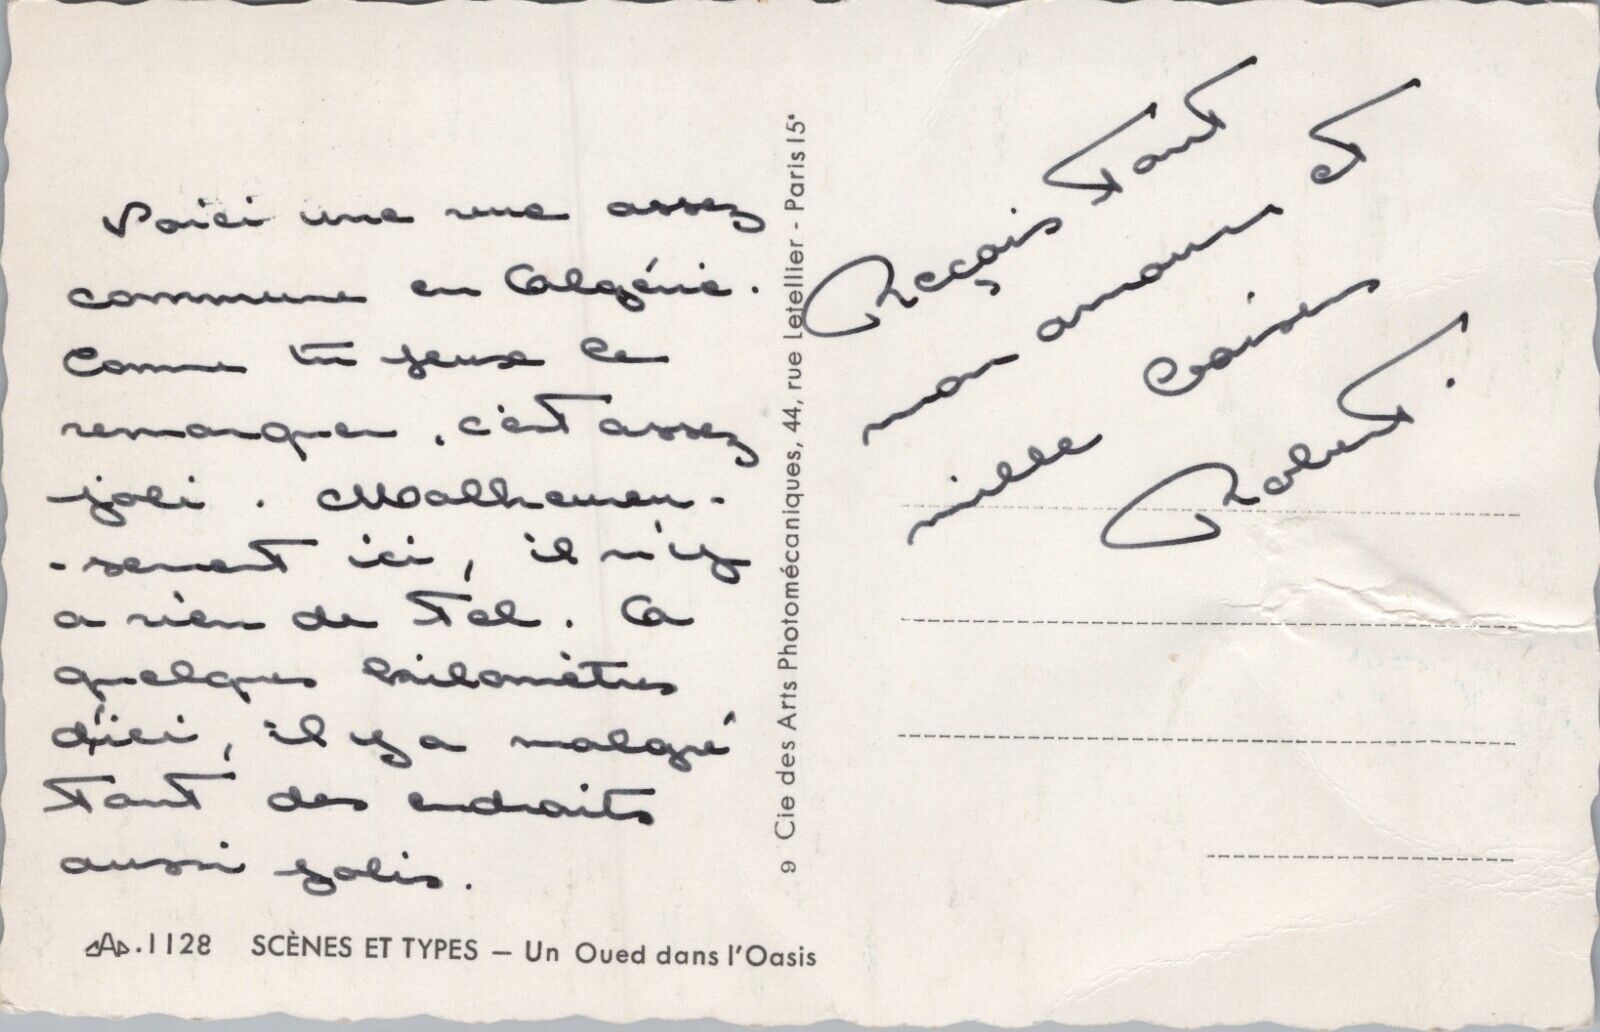 Voici une vue assez
commune en Algérie.
Comme tu peux le
remarquer, c'est assez
joli. Malheureu-
-sement ici, il n'y
a rien de tel. A
quelques kilomètres
d'ici, il y a malgré
tant des endroits
aussi jolis.
CAP.1128 SCÈNES ET TYPES – Un Oued dans l'Oasis
9 Cie des Arts Photomécaniques, 44, rue Letellier - Paris 15e
Reçois tout
mon amour et
mille baisers
Robert.